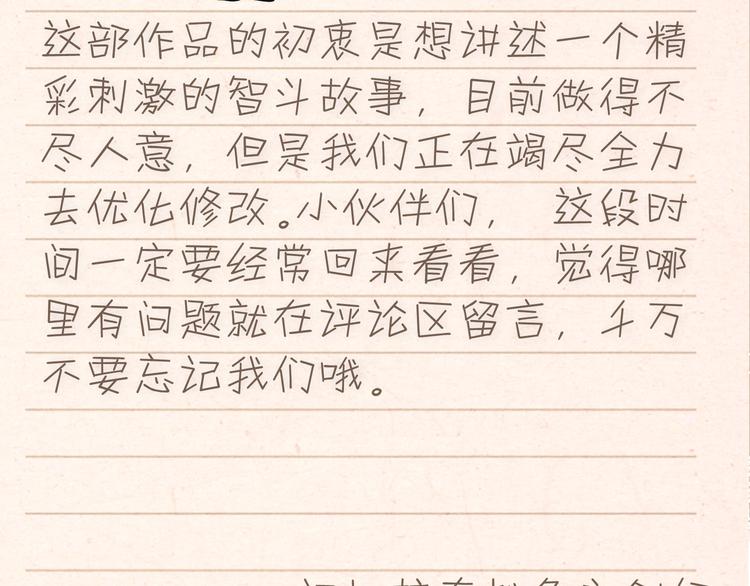 这部作品的初衷是想讲述一个精
彩刺激的智斗故事，目前做得不
尽人意，但是我们正在竭尽全力
去优化修改。小伙伴们， 这段时
间一定要经常回来看看，觉得哪
里有问题就在评论区留言，千万
不要忘记我们哦。